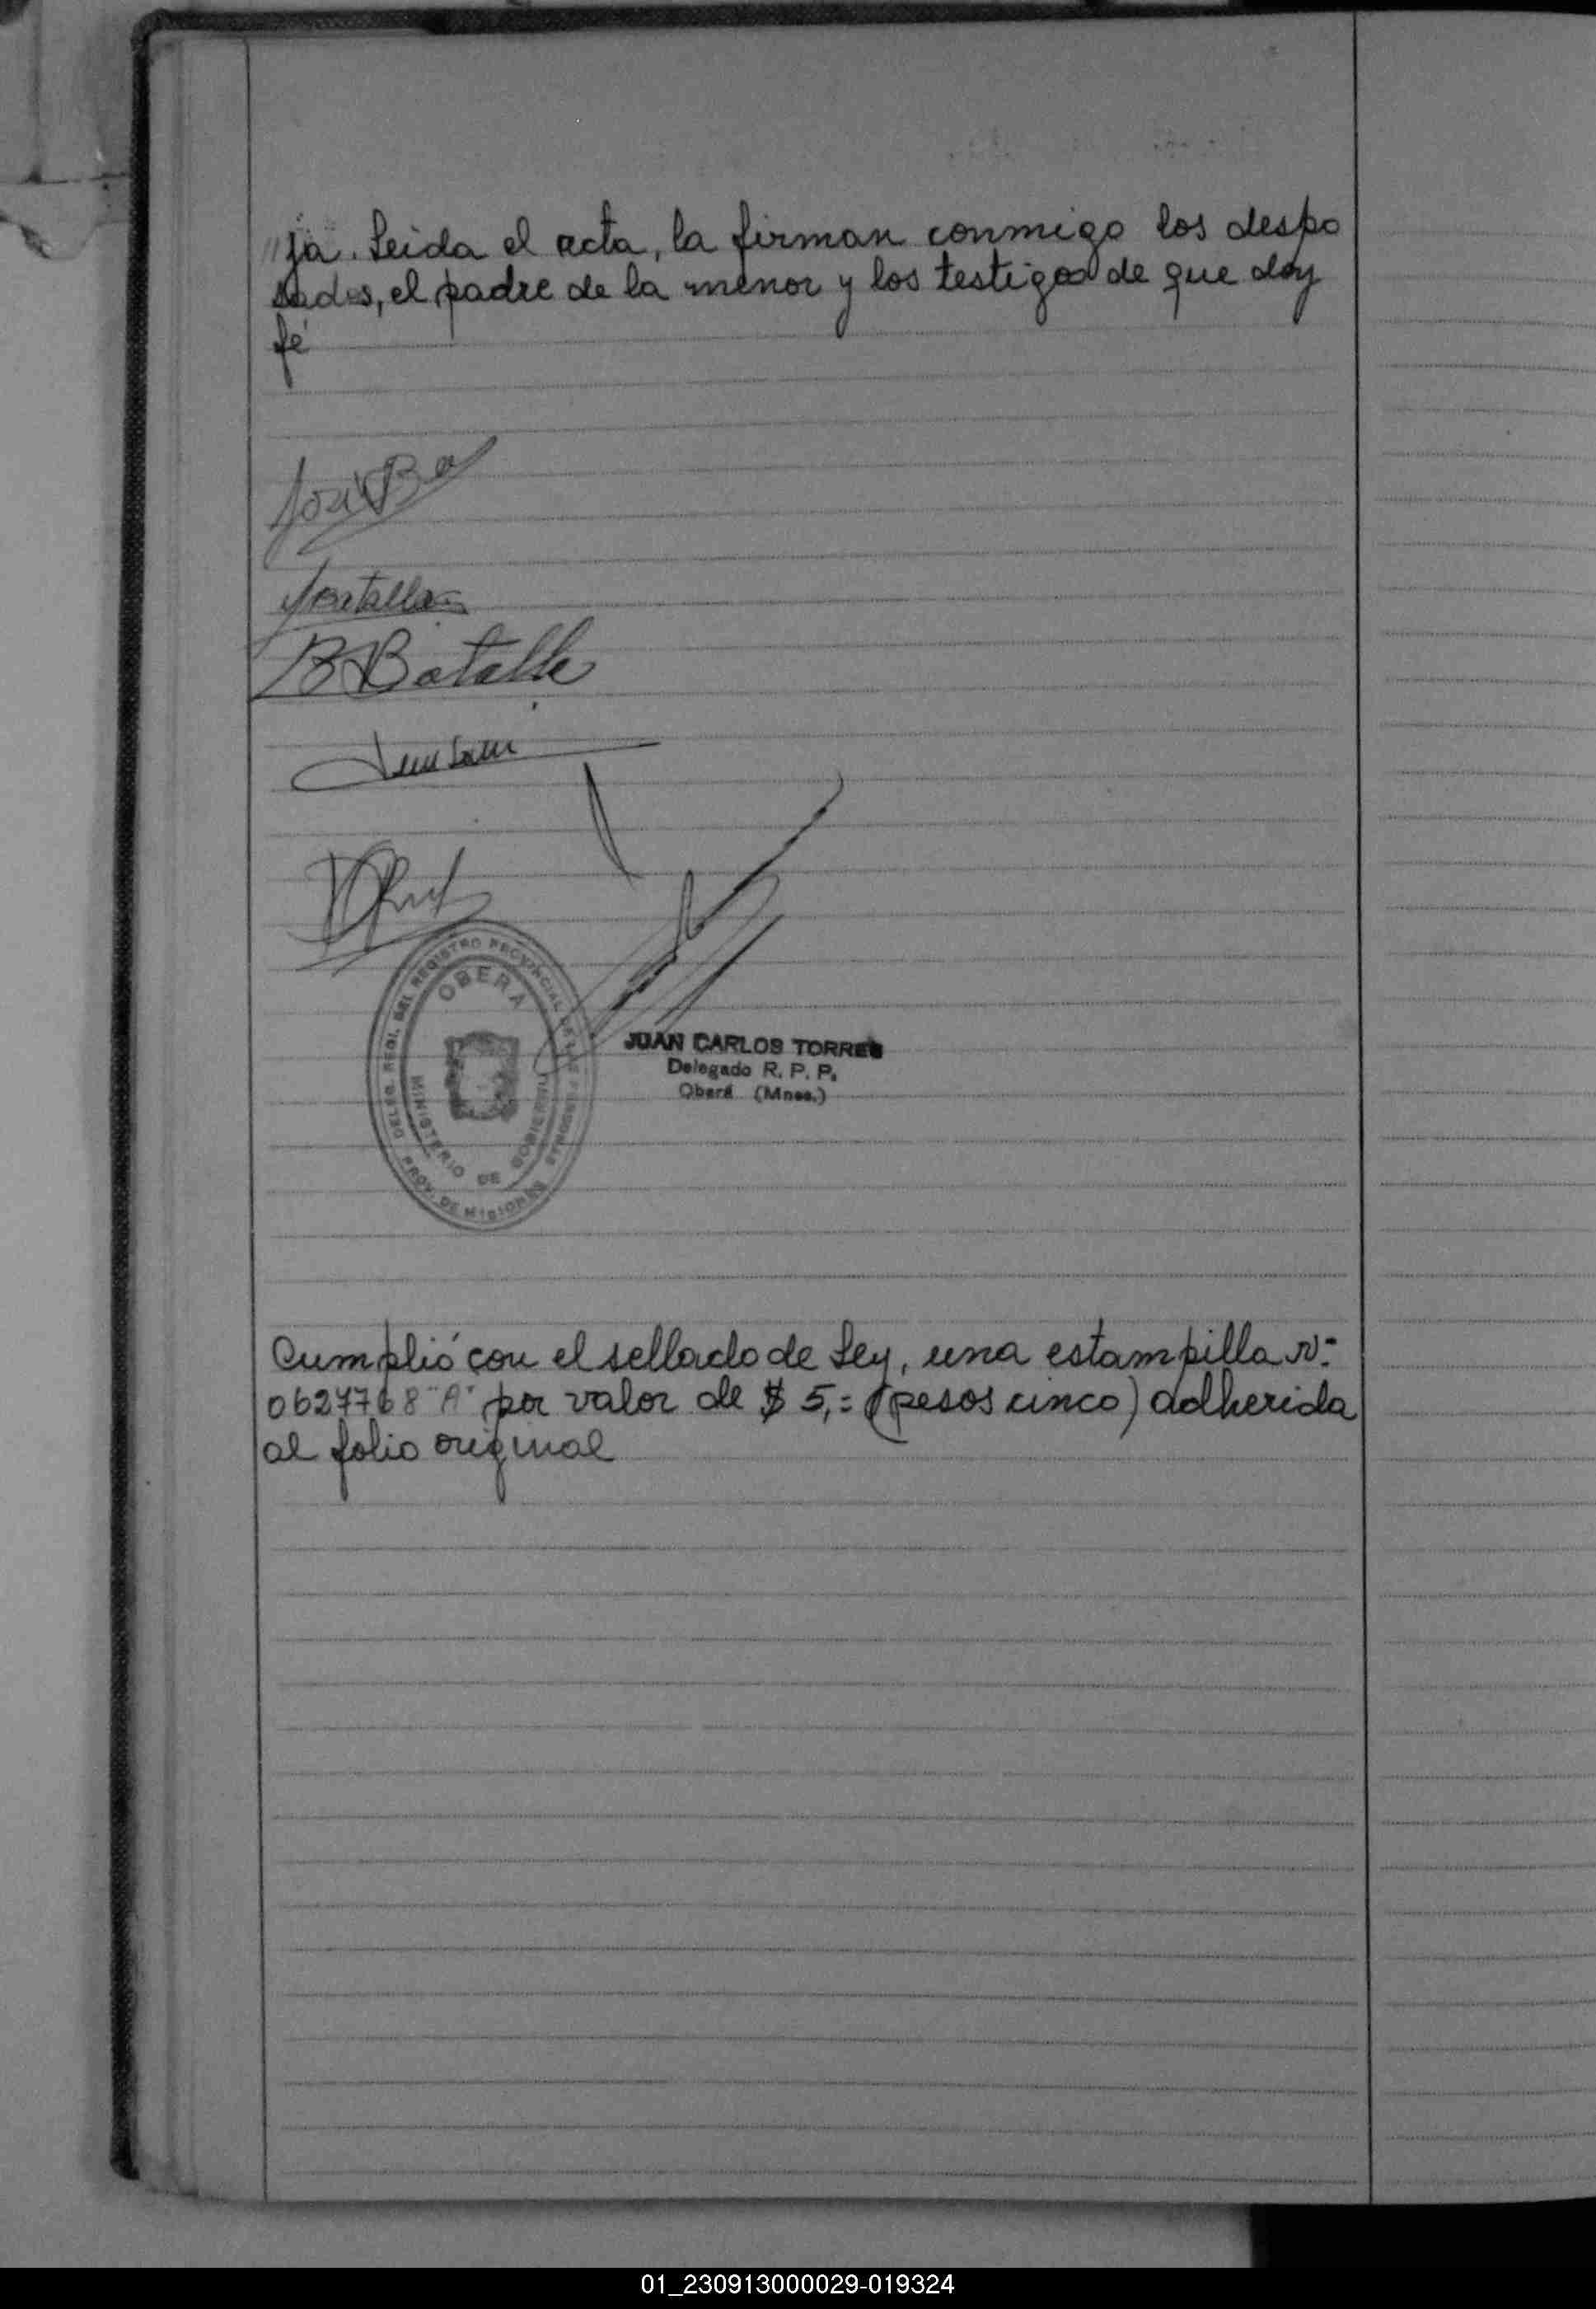 "ja. Leida el acta, la firman conmigo los despo
sados, el padre de la menor y los testigos de que doy
fé
José B
Batalla
B Batalla
DELEG. REGI. DEL REGISTRO PROVINCIAL DE LAS PERSONAS
OBERA
MINISTERIO DE GOBIERNO
PROV. DE MISIONES
JUAN CARLOS TORRES
Delegado R. P. P.
Oberá (Mnes.)
Cumplió con el sellado de Ley, una estampilla Nº
0627768 "A" por valor de $ 5,= (pesos cinco) adherida
al folio original
01_230913000029-019324